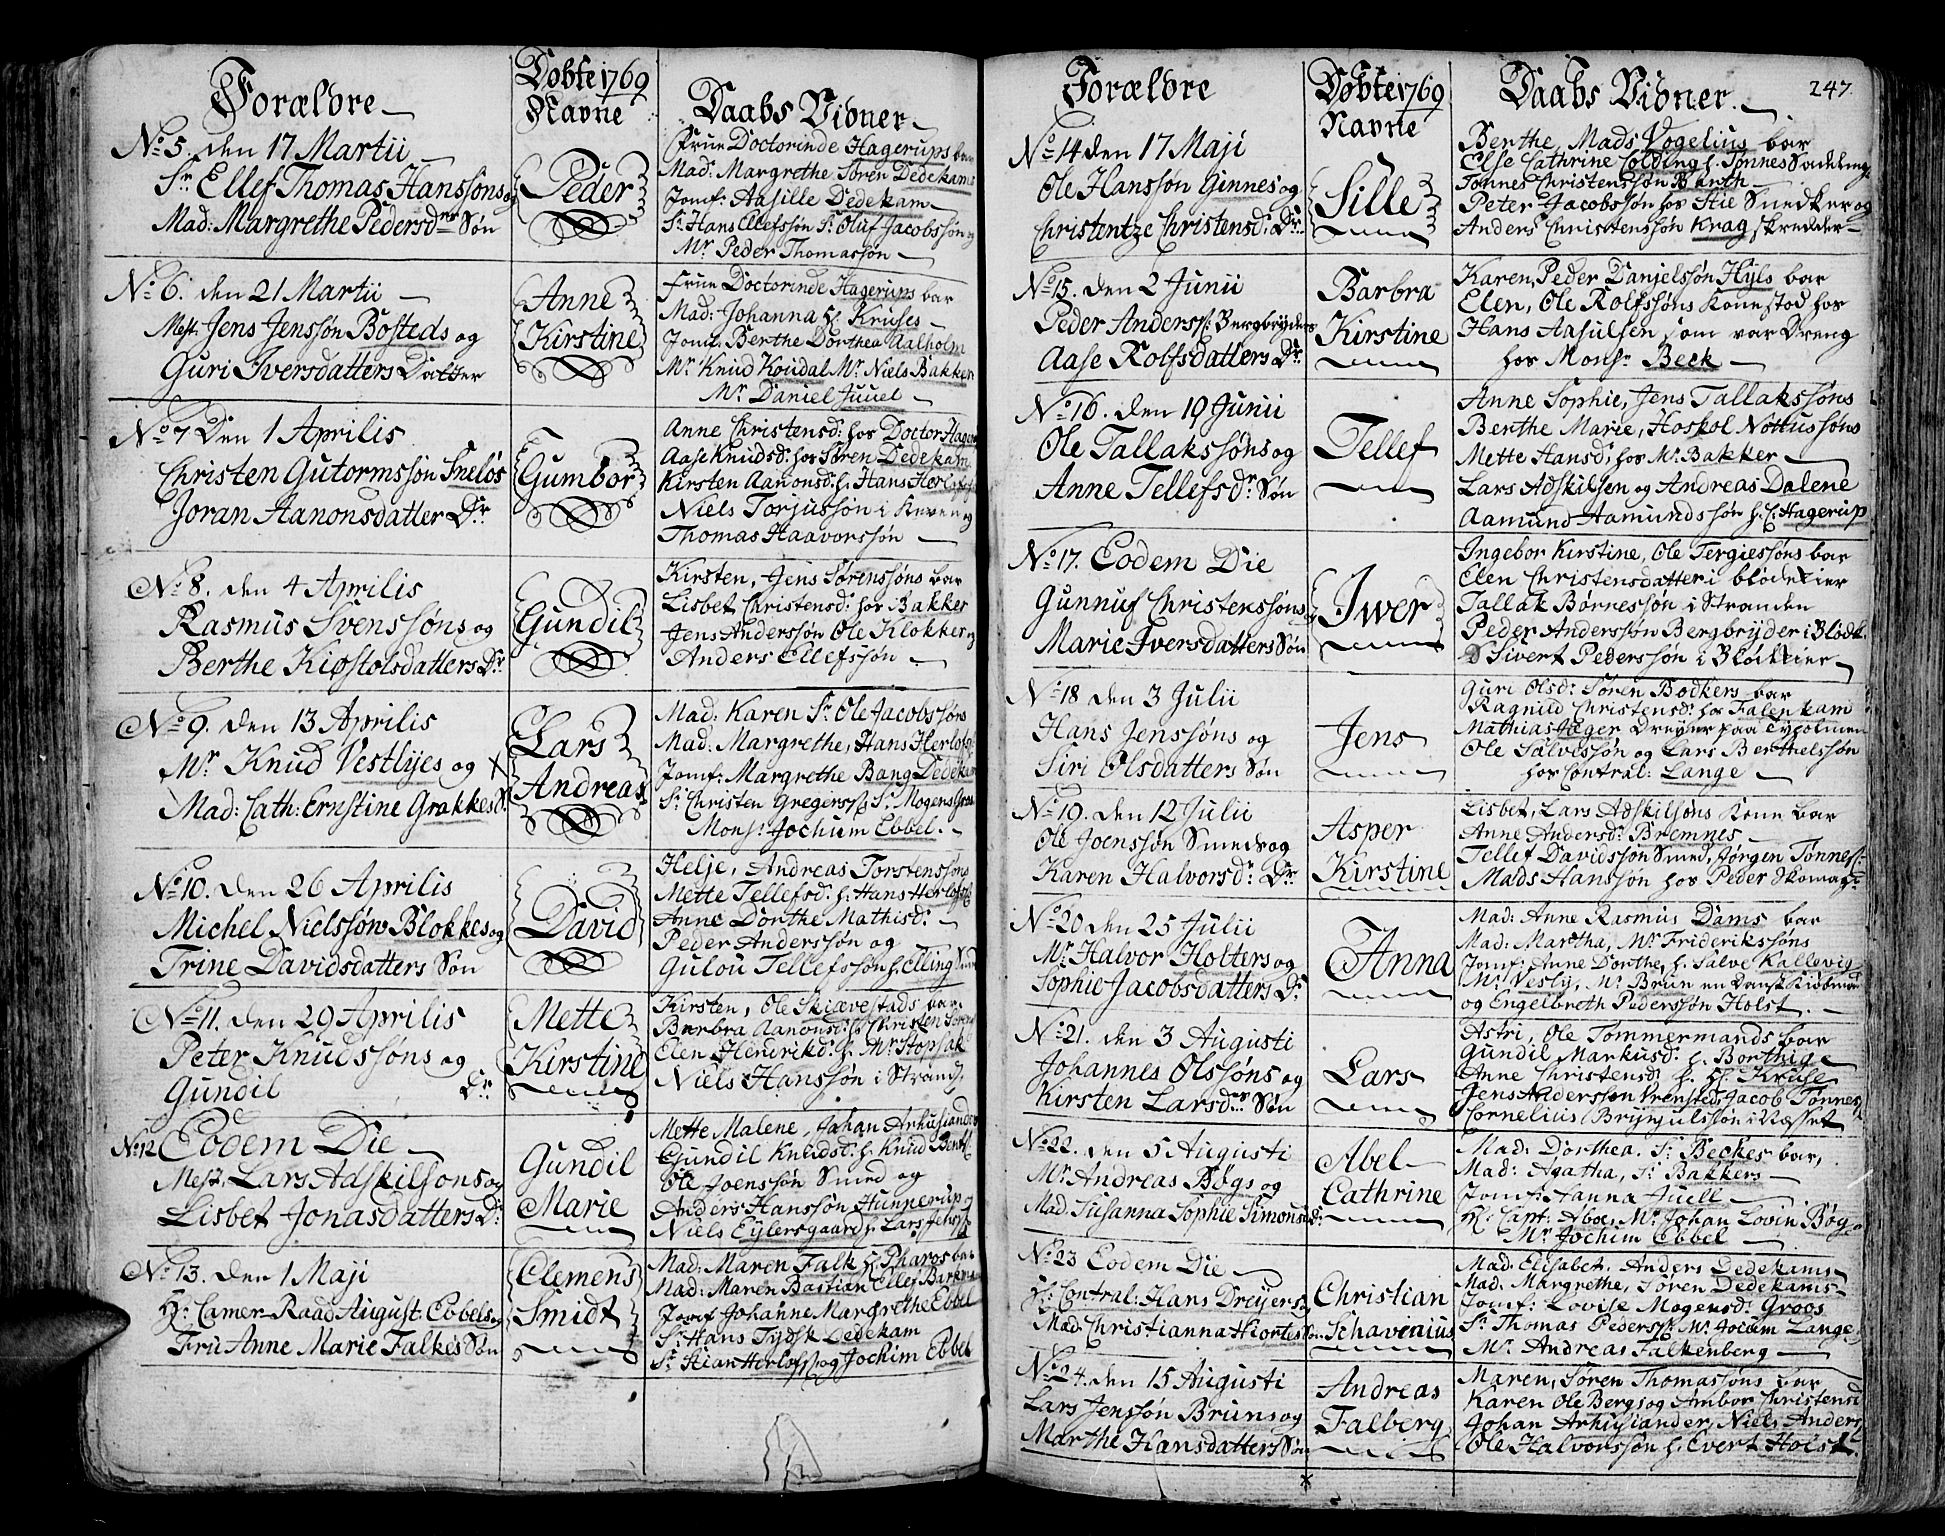 Forældre
Døbte 1769
Navne
Daabs Vidner
No 5. den 17 Martii
Sr. Ellef Thomas Hanssøns og
Mad: Margrethe Pedersd. Søn
Peder
Frue Doctorinde Hagerups bar
Mad: Margrethe Søren Dedekams
Jomf: Aasille Dedekam
Sr. Hans Ellefssøn Sr. Oluf Jacobssøn og
Mr. Peder Thomassøn
No 6. den 21 Martii
Mest: Jens Jenssøn Bosteds og
Guri Iversdatters Datter
Anne
Kirstine
Frue Doctorinde Hagerups bar
Mad: Johanna H. Kruses
Jomf: Berthe Dorthea Aalholm
Mr. Knud Koudal Mr. Niels Bakker
Mr. Daniel Juuel
No 7 Den 1 Aprilis
Christen Gutormssøn Sneløs
Joran Aanonsdatter Dr.
Gumbor
Anne Christensd: hos Doctor Hager
Aase Knudsd. hos Søren Dedekam
Kirsten Aanonsd: h. Hans Herlofs
Niels Torjussøn i Keven og
Thomas Haavorssøn
No 8. den 4 Aprilis
Rasmus Svenssøns og
Berthe Kiøstolsdatters Dr.
Gundil
Kirsten, Jens Sørenssøns bar
Lisbet Christensd: hos Bakker
Jens Anderssøn Ole Klokker og
Anders Ellefssøn
No 9. den 13 Aprilis
Mr. Knud Vestlyes og
Mad: Cath: Ernstine Grakkes S.
Lars
Andreas
Mad: Karen Sr. Ole Jacobssøns
Mad: Margrethe, Hans Herlofs
Jomf: Margrethe Bang Dedekam
Sr. Christen Gregerss. Sr. Mogens Groos
Mons: Jochum Ebbel.
No 10. den 26 Aprilis
Michel Nielssøn Blokkes og
Trine Davidsdatters Søn
David
Helje, Andreas Torstenssøns
Mette Tellefsd: h: Hans Herlofs
Anne Dorthe Mathisd:
Peder Anderssøn og
Gulou Tellefssøn h. Elling Smed
No 11. den 29 Aprilis
Peter Knudssøns og
Gundil Dr.
Mette
Kirstine
Kirsten, Ole Skiævestads bar
Barbra Aanonsd: h. Christen
Elen Hendrikd: h. Mr. Stopsak
Niels Hanssøn i Strand.
No 12 Eodem Die
Mest. Lars Adskilsøns og
Lisbet Jonasdatters D.
Gundil
Marie
Mette Malene, Johan Arhusiand
Gundil Knudsd: h. Knud
Ole Joenssøn Smed og
Anders Hanssøn Hunnerup og
Niels Eylersgaard h. Lars
No 13. den 1 Maji
H: Camer-Raad August. Ebbels og
Fru Anne Marie Falkes Søn
Clemens
Smidt
Mad: Maren Falk H. Pharos bar
Mad: Maren Bastian Ellef
Jomf Johanne Margrethe Ebbel
Sr. Hans Tydsk Dedekam
Sr. Stian Herlofs. og Jochim Ebbel
Forældre
Døbte 1769
Navne
Daabs Vidner.
247
No 14 den 17 Maji
Ole Hanssøn Ginnes og
Christentze Christensd: Dr.
Sille
Berthe, Mads Vogelius bar
Else Cathrine Colding h. Tønnes
Tønnes Christenssøn Barth
Peter Jacobssøn hos Stie Snedker og
Anders Christenssøn Krag skredder
No 15. den 2 Junii
Peder Anderss: Bergbryders
Aase Rolfsdatters Dr.
Barbra
Kirstine
Karen, Peder Danielssøn Hyls bar
Elen, Ole Rolfssøns Kone stod hos
Hans Aasulsen som var Dreng
hos Monsr. Beck
No 16. den 19 Junii
Ole Tallakssøns og
Anne Tellefsdr. Søn
Tellef
Anne Sophie, Jens Tallakssøns
Berthe Marie, Hoskol Nottussøns
Mette Hansd: hos Mr. Bakker
Lars Adskilsen og Andreas Dalene
Aamund Aamundssøn h. C: Hagerup
No 17. Eodem Die
Gunnuf Christenssøns og
Marie Iversdatters Søn
Iwer
Ingebor Kirstine, Ole Tergiessøns bar
Elen Christensdatter i blødekier
Tallak Børnessøn i Stranden
Peder Anderssøn Bergbryder i Blødk.
Sivert Pederssøn i Blødekier
No 18 den 3 Julii
Hans Jenssøns og
Siri Olsdatters Søn
Jens
Guri Olsd: Søren Bødkers bar
Ragnild Christensd: hos Falenkam
Mathias Jæger Dreyer paa Tyholmen
Ole Salvessøn og Lars Berthelssøn
hos Control: Lange
No 19. den 12 Julii
Ole Joenssøn Smeds og
Karen Halvorsdr. Dr.
Asper
Kirstine
Lisbet, Lars Adskilsøns Kone bar
Anne Andersd. Bremnes
Tellef Davidssøn Smed, Jørgen Tønness.
Mads Hanssøn hos Peder Skomag
No 20 den 25 Julii
Mr. Halvor Holters og
Sophie Jacobsdatters D.
Anna
Mad: Anne Rasmus Dams bar
Mad: Martha, Mr. Friderikssøns
Jomf: Anne Dorthe, h. Salve Kallevig
Mr. Vesly, Mr. Brun en Dansk Kiøbmand
og Engelbreth Pederssøn Holst.
No 21. den 3 Augusti
Johannes Olssøns og
Kirsten Larsd. Søn
Lars
Astri, Ole Tømmermands bar
Gundil Markusd: h. Borthig
Anne Christensd h. H. Kruse
Jens Anderssøn Vrensted, Jacob Tønnes
Cornelius Brynjulssøn i Næsset
No 22. den 5 Augusti
Mr. Andreas Bøgs og
Mad Susanna Sophie Simons D:
Abel
Cathrine
Mad: Dorthea. Sr. Beckes bar,
Mad: Agatha, Sr. Bakkers
Jomf: Hanna Juell
H: Capt: Aboe, Mr. Johan Lovin Bøg
Mr. Jochim Ebbel
No 23 Eodem Die
H: Control: Hans Dreyers og
Mad Christianna Hiortes Søn
Christian
Schavenius
Mad: Elisabet. Anders Dedekams
Mad: Margrethe, Søren Dedekams
Jomf: Lovise Mogensd: Groos
Sr. Thomas Pederss. Mr. Jocum Lange
Mr. Andreas Falkenberg
No 24. den 15 Augusti
Lars Jenssøn Bruns og
Marthe Hansdatters Søn
Andreas
Falberg
Maren, Søren Thomassøns bar
Karen Ole Bergs og Ambor Christensd
Johan Arhusiander, Niels Anders
Ole Halvorssøn h. Evert Holst.